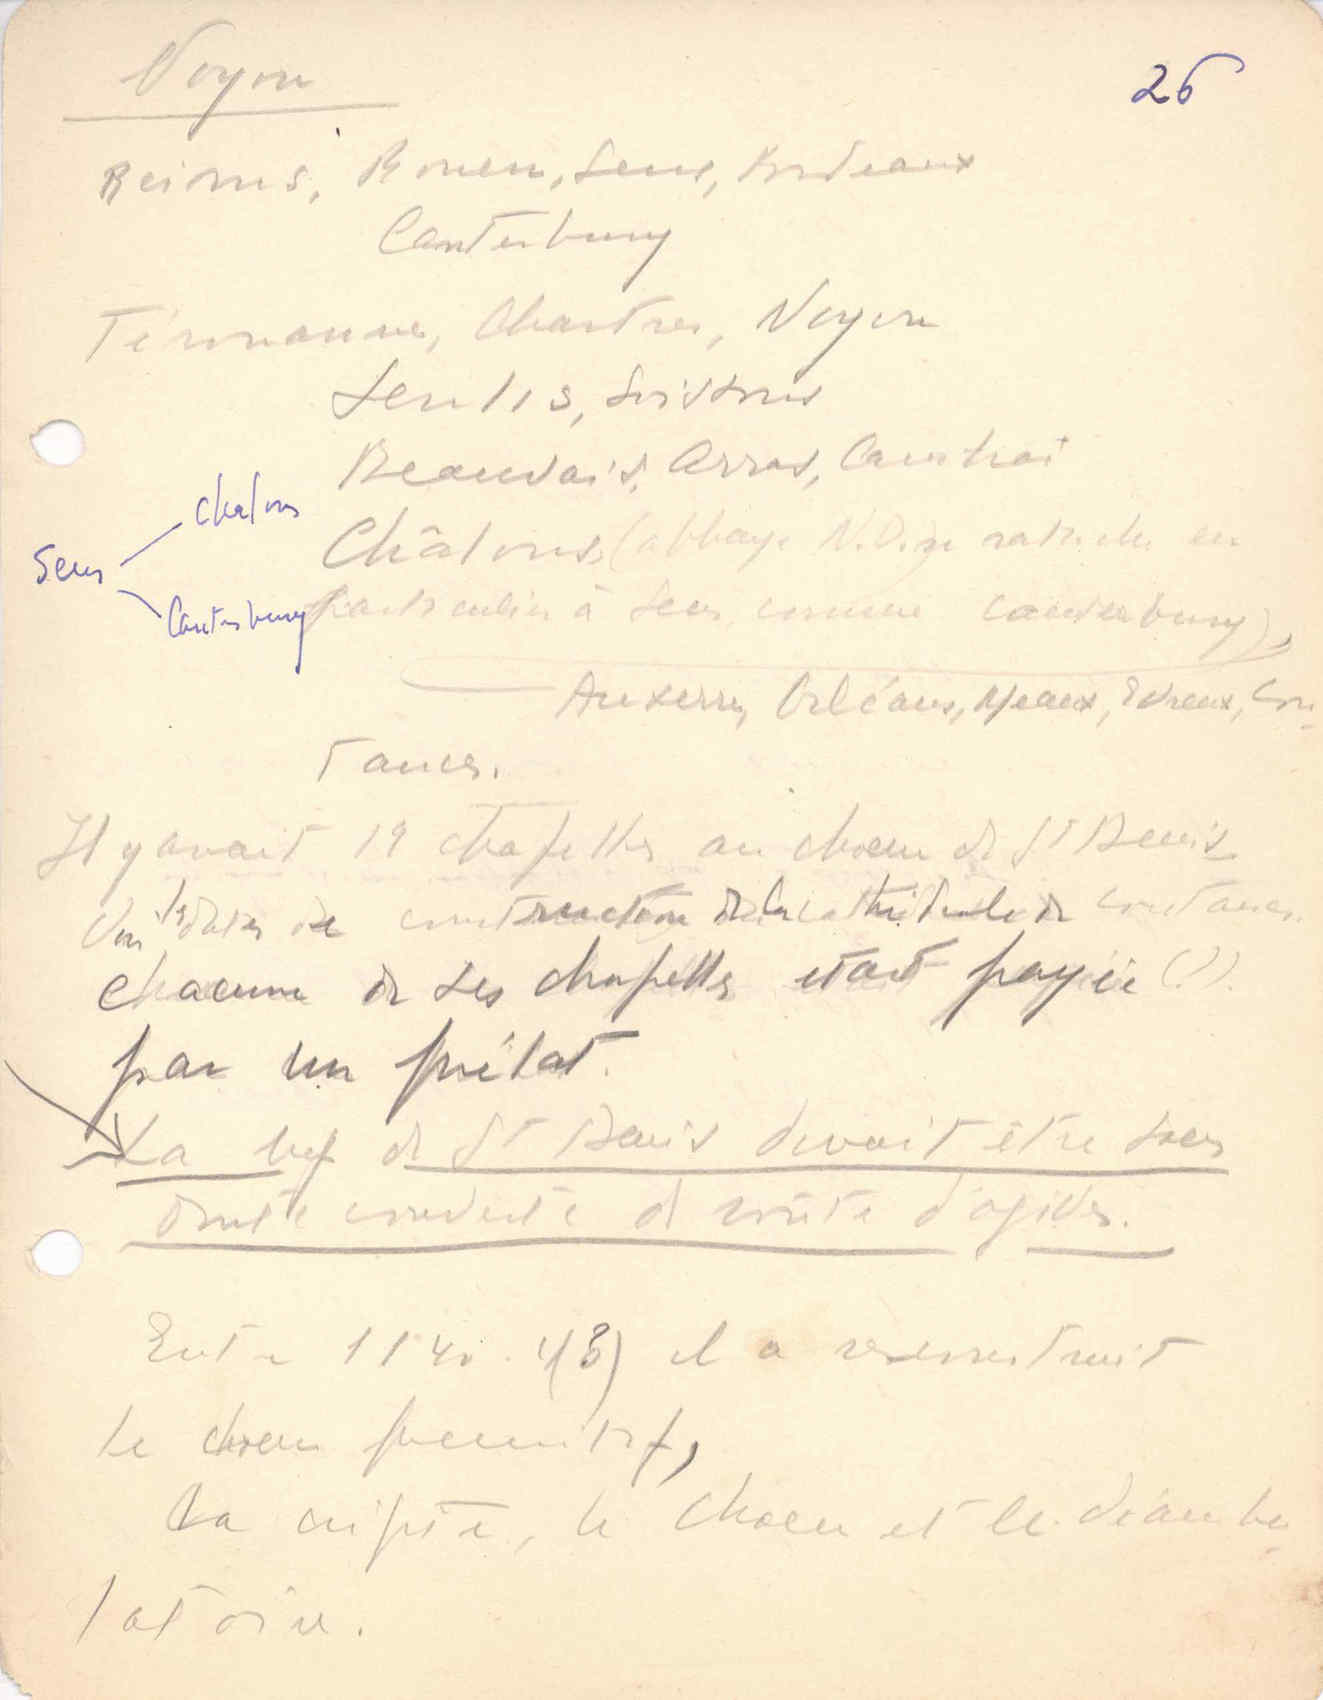 Noyon
26
Reims, Rouen, Sens, Bordeaux
Canterbury
Térouanne, Chartres, Noyon
Senlis, Soissons
Beauvais, Arras, Cambrai
Châlons (abbaye N.D. en
particulier à Sens comme Canterbury),
Sens
Chalons
Canterbury
Auxerre, Orléans, Meaux, Evreux, Cou-
tances.
Il y avait 19 chapelles au choeur de St Denis
Voir les dates de construction de la cathédrale de Coutances.
chacune de ses chapelles était payée (?)
par un prélat.
La nef de St Denis devait être sans
doute couverte de voûte d'ogives.
Entre 1140-4(3) il a reconstruit
le choeur primitif,
La cripte, le choeur et le déambu-
latoire.